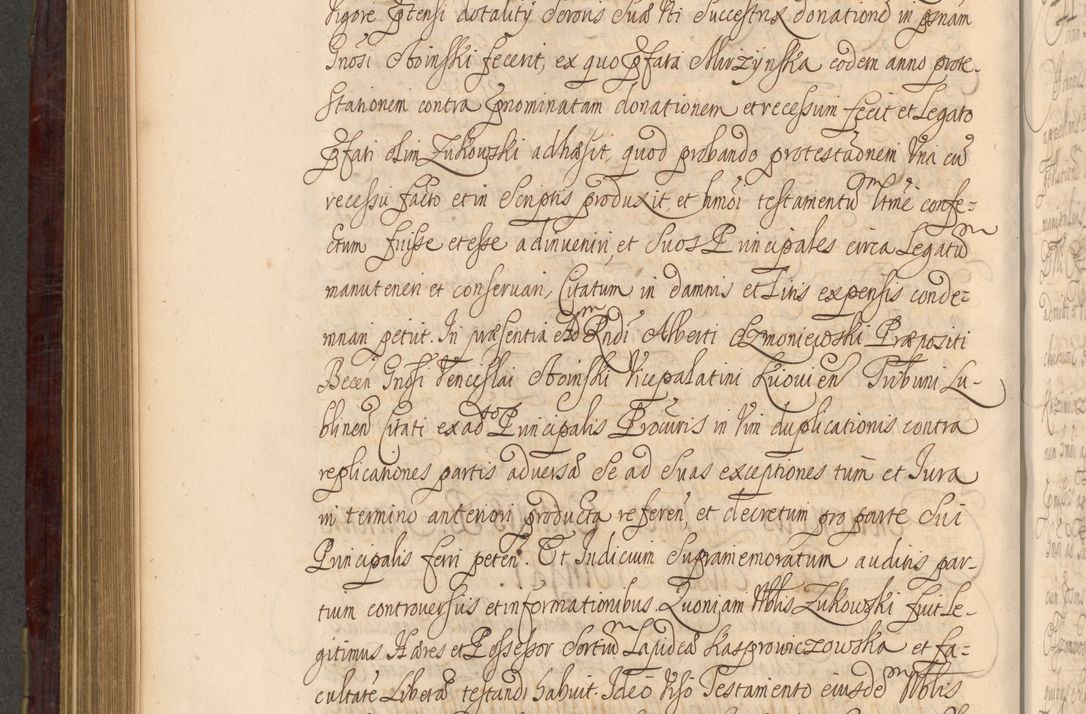 vigore ptensi dotality Sororis Suæ Pti Successtrix donatione in psnam
Gnosi Stoinski fecerit, ex quo pfata Mirzynska eodem anno prote-
stationem contra pnominatam donationem et recessum fecit et Legato
pfati olim Zukowski adhæsit, quod probando protestaonem Una cu
recessu facto et in Scriptis produxit, et hmoi testamentu ltme confe=
ctum fuisse et esse adinveniri, et Suos Principales circa Legatu
manuteneri et conservari, Citatum in damnis et Litis expensis conde=
mnari petyt. In præsentia Rndi Alberti Szmoniewski Præpositi
Becen Gnosi Venceslai Stoinski Vicepalatini Kijovien Tribuni Lu-
blinen Citati ex ad Principalis Procuris in Vim duplicationis contra
replicationes partis adversæ Se ad Suas exceptiones tum et Iura
in termino anteriori producta referen, et decretum pro parte Sui
Principalis ferri peten. Et Iudicium Supramemoratum auditis par-
tium controversiis et informationibus. Quoniam Nblis Zukowski fuit Le-
gitimus Hæres et Possessor Sortiu Lapideæ Kasprowiczowska et fa=
cultate Libera testandi habuit. Ideo Viso Testamento eiusde Nblis